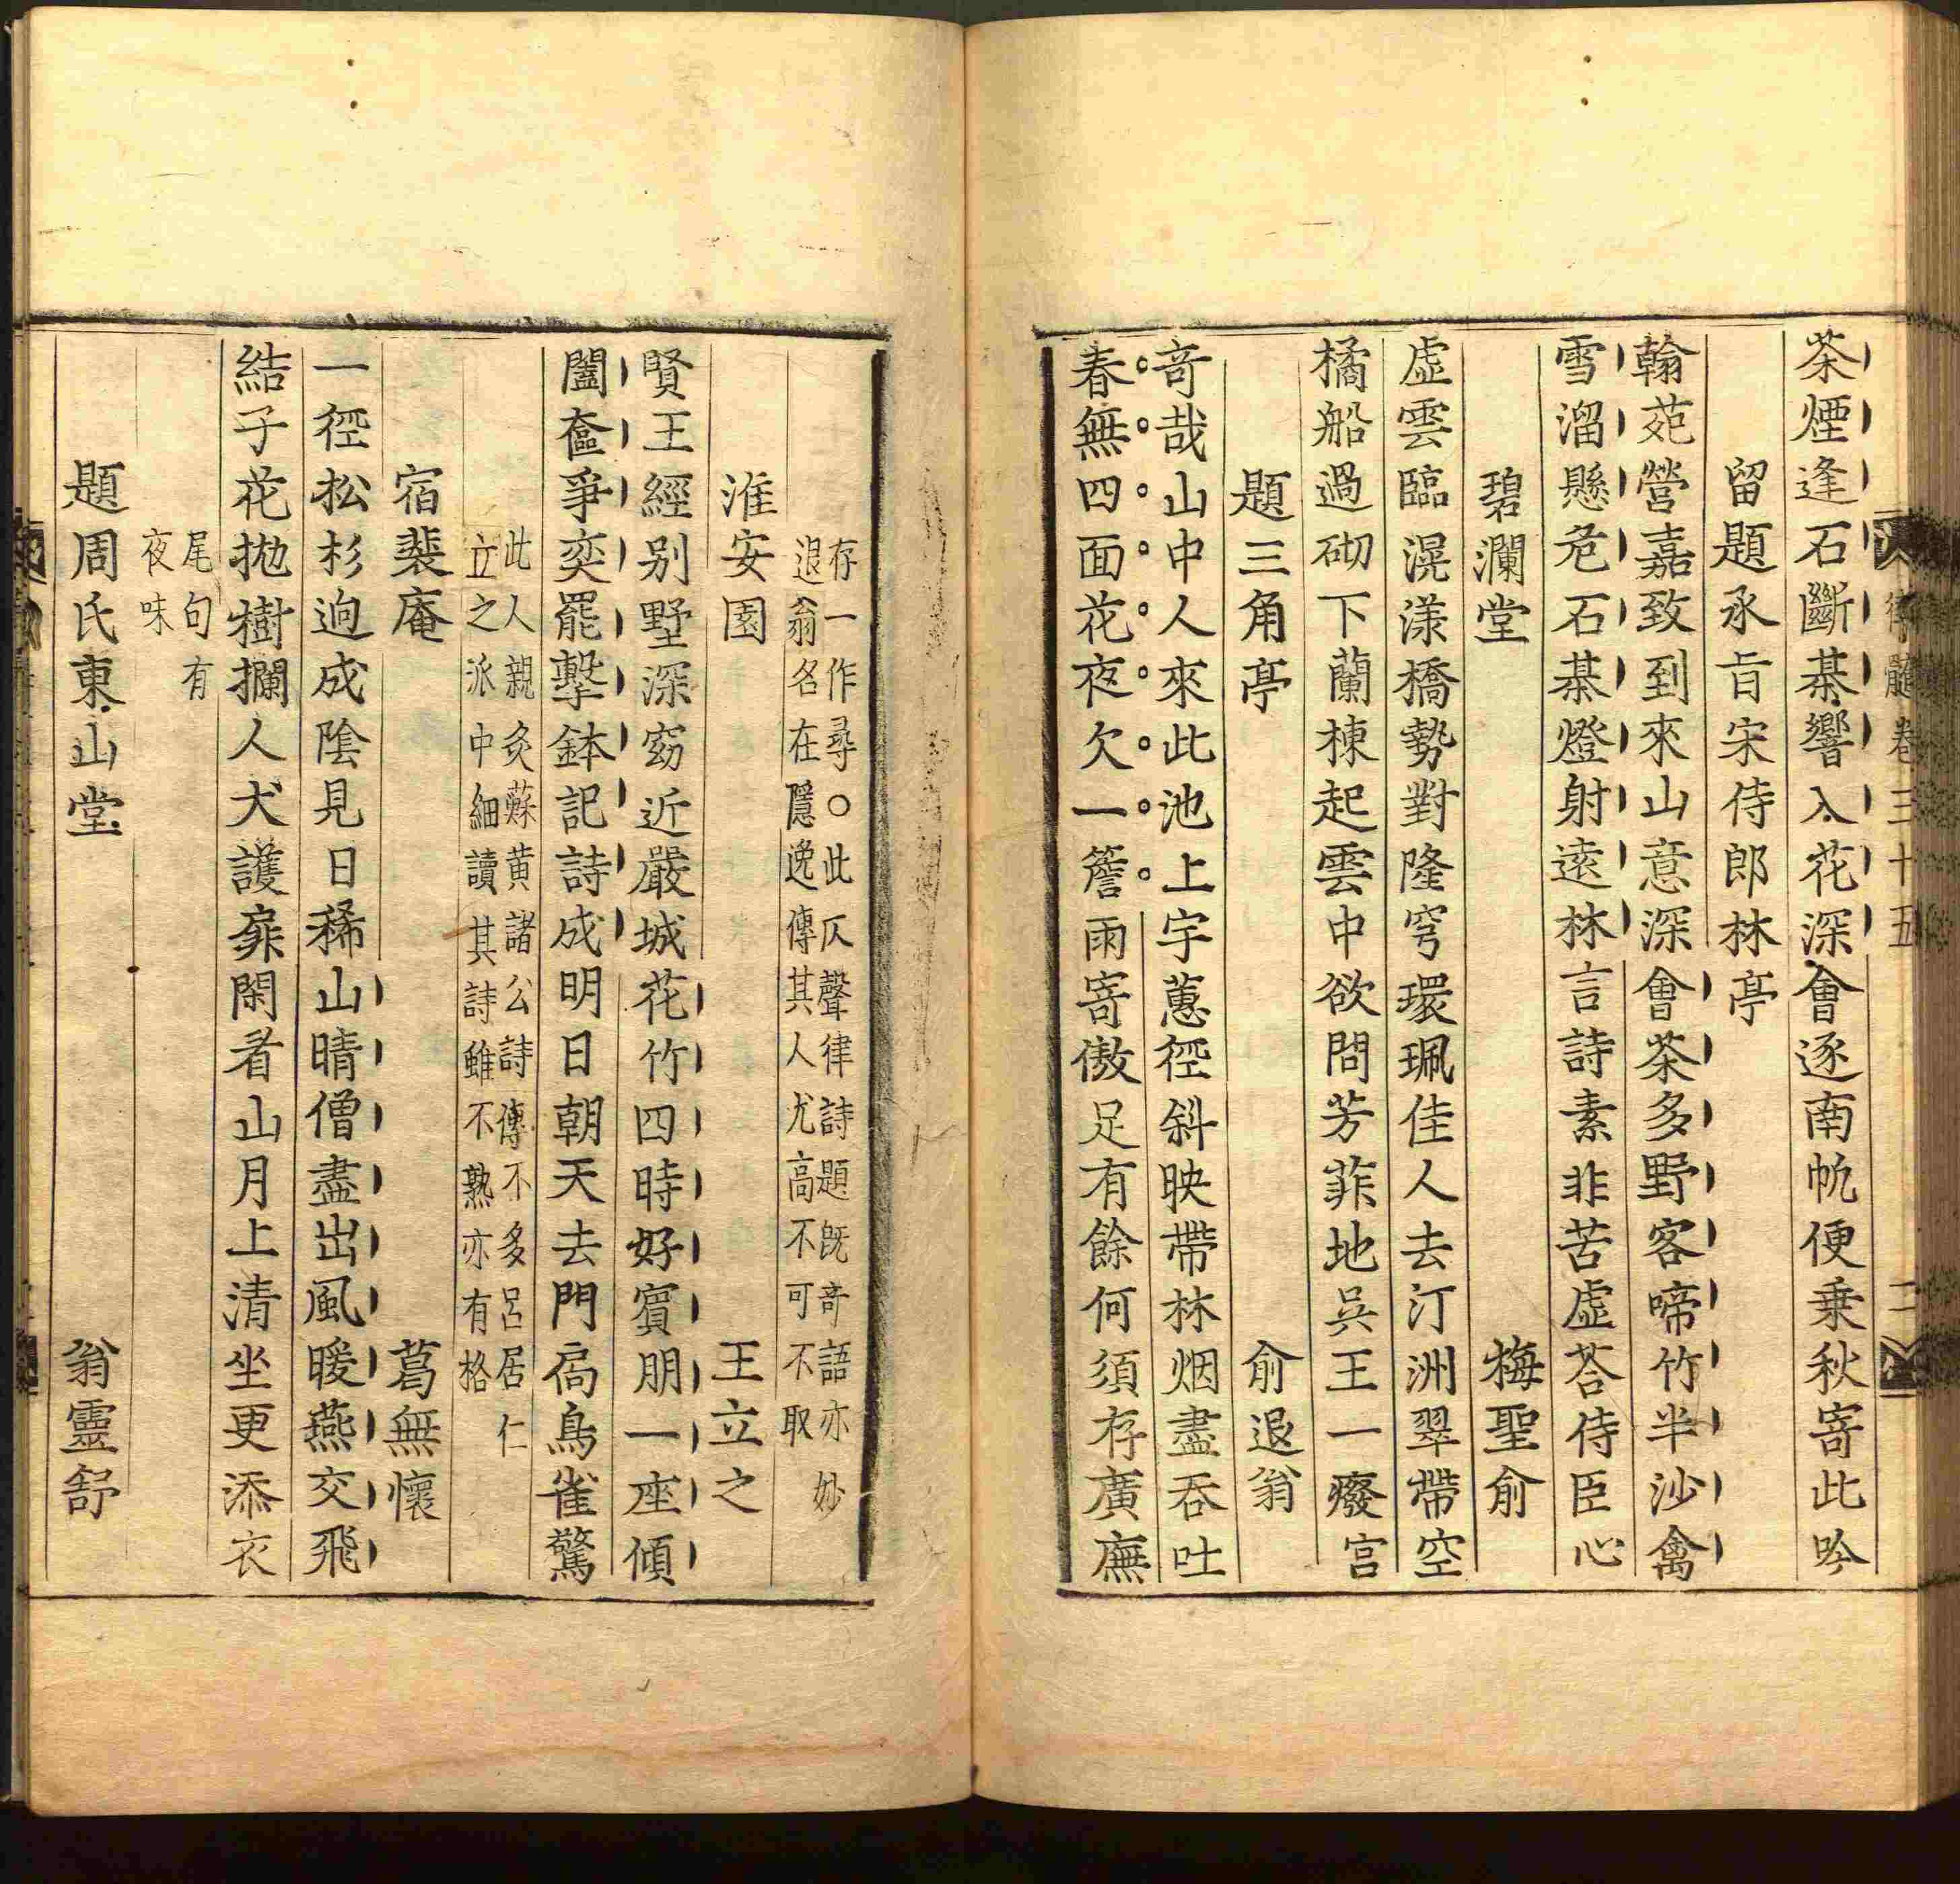 律髓卷三十五 二
茶煙逢石斷棊響入花深會逐南帆便乗秋寄此吟
留題承旨宋侍郎林亭
翰苑營嘉致到來山意深會茶多野客啼竹半沙禽
雪溜懸危石棊燈射遠林言詩素非苦虛荅侍臣心
碧瀾堂 梅聖俞
虛雲臨滉漾橋勢對隆穹環珮佳人去汀洲翠帶空
橘船過砌下蘭棟起雲中欲問芳菲地吳王一癈宮
題三角亭 俞退翁
竒哉山中人來此池上宇蕙徑斜映帶林烟盡吞吐
春無四面花夜欠一簷雨寄傲足有餘何須存廣廡
存一作尋○此仄聲律詩題旣竒語亦妙
退翁名在隱逸傳其人尤高不可不取
淮安園 王立之
賢王經别墅深窈近嚴城花竹四時好賓朋一座傾
闔奩爭奕罷擊鉢記詩成明日朝天去門扄鳥雀驚
此人親炙蘇黄諸公詩傳不多呂居仁
立之派中細讀其詩雖不熟亦有格
宿裴庵 葛無懷
一徑松杉逈成陰見日稀山晴僧盡出風暖燕交飛
結子花拋樹攔人犬護扉閑看山月上清坐更添衣
尾句有
夜味
題周氏東山堂 翁靈舒